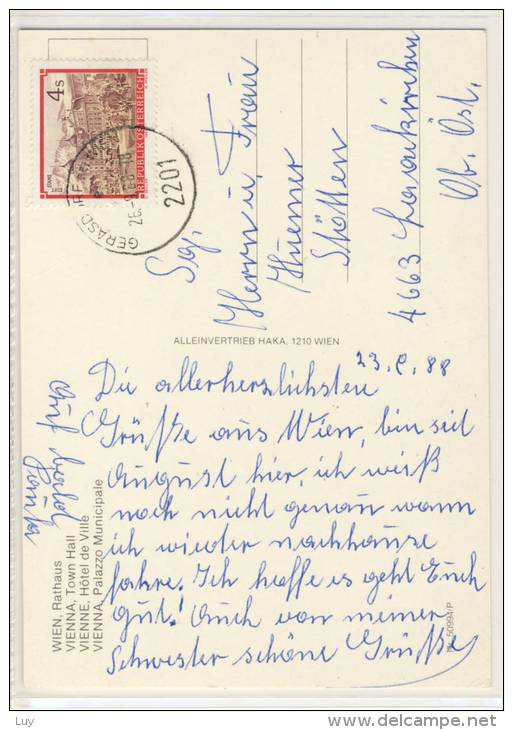 4s
REPUBLIK ÖSTERREICH
GERASDORF
2201
Herrn u. Frau
Huemer
Stötten
4663 Laakirchen
Ob. Öst.
ALLEINVERTRIEB HAKA, 1210 WIEN
88
Die allerherzlichsten
Grüße aus Wien, bin seit
August hier, ich weiß
noch nicht genau wann
ich wieder nachhause
fahre. Ich hoffe es geht Euch
gut! Auch von meiner
Schwester schöne Grüße
Auf bald
WIEN, Rathaus
VIENNA, Town Hall
VIENNE, Hôtel de Ville
VIENNA, Palazzo Municipale
50994/P
Luy
www.delcampe.net